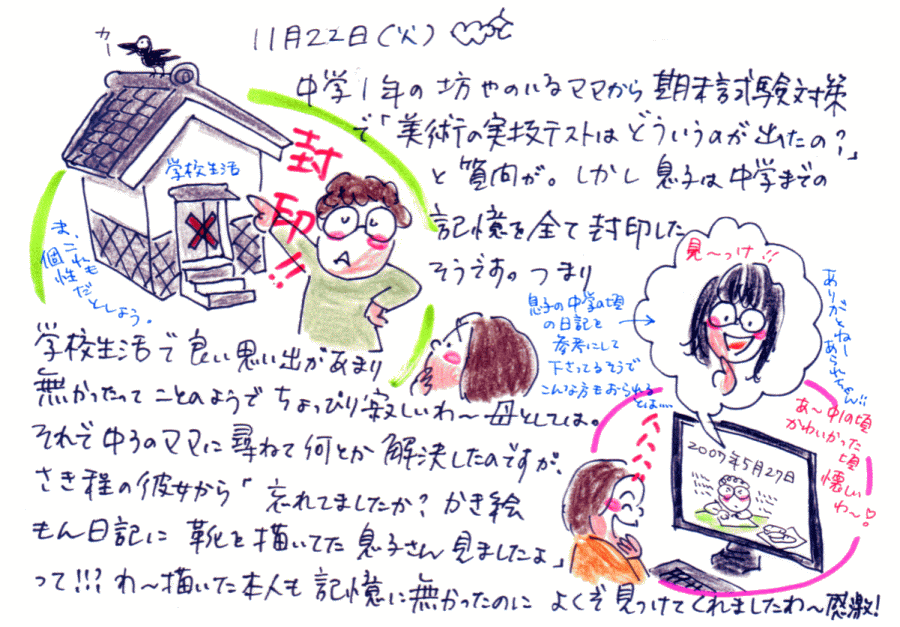 11月22日(火) wet
カー
中学1年の坊やのいるママから期末試験対策
で「美術の実技テストはどういうのが出たの?」
と質問が。しかし息子は中学までの
記憶を全て封印した
そうです。つまり
学校生活
封印!!
ま、これも
個性
だとしよう。
学校生活で良い思い出があまり
無かったってことのようでちょっぴり寂しいわ〜母としては。
それで中3のママに尋ねて何とか解決したのですが、
さき程の彼女から「忘れてましたか?かき絵
もん日記に靴を描いてた息子さん見ましたよ」
って!!!わ〜描いた本人も記憶に無かったのによくぞ見つけてくれましたわ〜感激!
見〜っけ!!
ありがとねー
あられちゃん!!
息子の中学の頃
の日記を
参考にして
下さってるそうで
こんな方もおられる
とは....
ハハハハ
2007年5月27日
あ〜中1の頃
かわいかった
頃
懐しい
わ〜♡